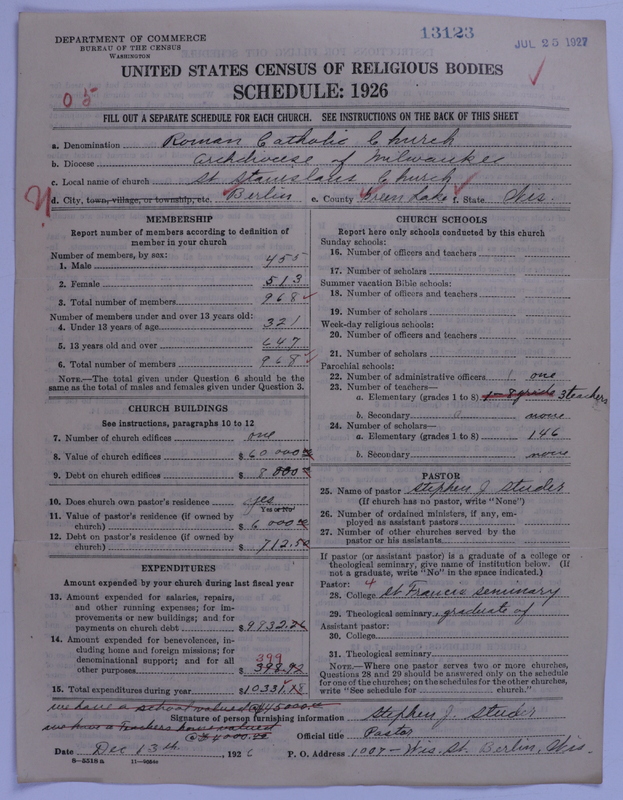 DEPARTMENT OF COMMERCE
BUREAU OF THE CENSUS
WASHINGTON
13123
JUL 25 1927
UNITED STATES CENSUS OF RELIGIOUS BODIES
SCHEDULE: 1926
0 5/0
FILL OUT A SEPARATE SCHEDULE FOR EACH CHURCH. SEE INSTRUCTIONS ON THE BACK OF THIS SHEET
a. Denomination Roman Catholic Church
b. Diocese Archdiocese of Milwaukee
c. Local name of church St Stanislaus Church
d. City, town, village, or township, etc. Berlin e. County Green Lake f. State Wis.
MEMBERSHIP
Report number of members according to definition of
member in your church
Number of members, by sex:
1. Male 455
2. Female 513
3. Total number of members 968
Number of members under and over 13 years old:
4. Under 13 years of age 321
5. 13 years old and over 647
6. Total number of members 968
NOTE.—The total given under Question 6 should be the
same as the total of males and females given under Question 3.
CHURCH BUILDINGS
See instructions, paragraphs 10 to 12
7. Number of church edifices one
8. Value of church edifices $ 60 000 00
9. Debt on church edifices $ 8 000
10. Does church own pastor's residence yes
Yes or No
11. Value of pastor's residence (if owned by
church) $ 6 000 00
12. Debt on pastor's residence (if owned by
church) $ 712.50
EXPENDITURES
Amount expended by your church during last fiscal year
13. Amount expended for salaries, repairs,
and other running expenses; for im-
provements or new buildings; and for
payments on church debt $ 9932.26
14. Amount expended for benevolences, in-
cluding home and foreign missions; for
denominational support; and for all
other purposes $ 398.92
399
15. Total expenditures during year $ 10331.18
CHURCH SCHOOLS
Report here only schools conducted by this church
Sunday schools:
16. Number of officers and teachers
17. Number of scholars
Summer vacation Bible schools:
18. Number of officers and teachers
19. Number of scholars
Week-day religious schools:
20. Number of officers and teachers
21. Number of scholars
Parochial schools:
22. Number of administrative officers one
23. Number of teachers—
a. Elementary (grades 1 to 8) 1-8 grade 3 teachers
b. Secondary none
24. Number of scholars—
a. Elementary (grades 1 to 8) 146
b. Secondary none
PASTOR
25. Name of pastor Stephen J. Studer
(If church has no pastor, write "None")
26. Number of ordained ministers, if any, em-
ployed as assistant pastors
27. Number of other churches served by the
pastor or his assistants
If pastor (or assistant pastor) is a graduate of a college or
theological seminary, give name of institution below. (If
not a graduate, write "No" in the space indicated.)
Pastor: 4
28. College St Francis seminary
29. Theological seminary graduate of
Assistant pastor:
30. College
31. Theological seminary
NOTE.—Where one pastor serves two or more churches,
Questions 28 and 29 should be answered only on the schedule
for one of the churches; on the schedules for the other churches,
write "See schedule for church."
we have a school valued @ $45000.00
Signature of person furnishing information Stephen J. Studer
we have a Teachers house valued
@ $4000.00
Official title Pastor
Date Dec 13th, 1926 P. O. Address 1007 - Wis. St. Berlin, Wis.
8—5518a 11—9084